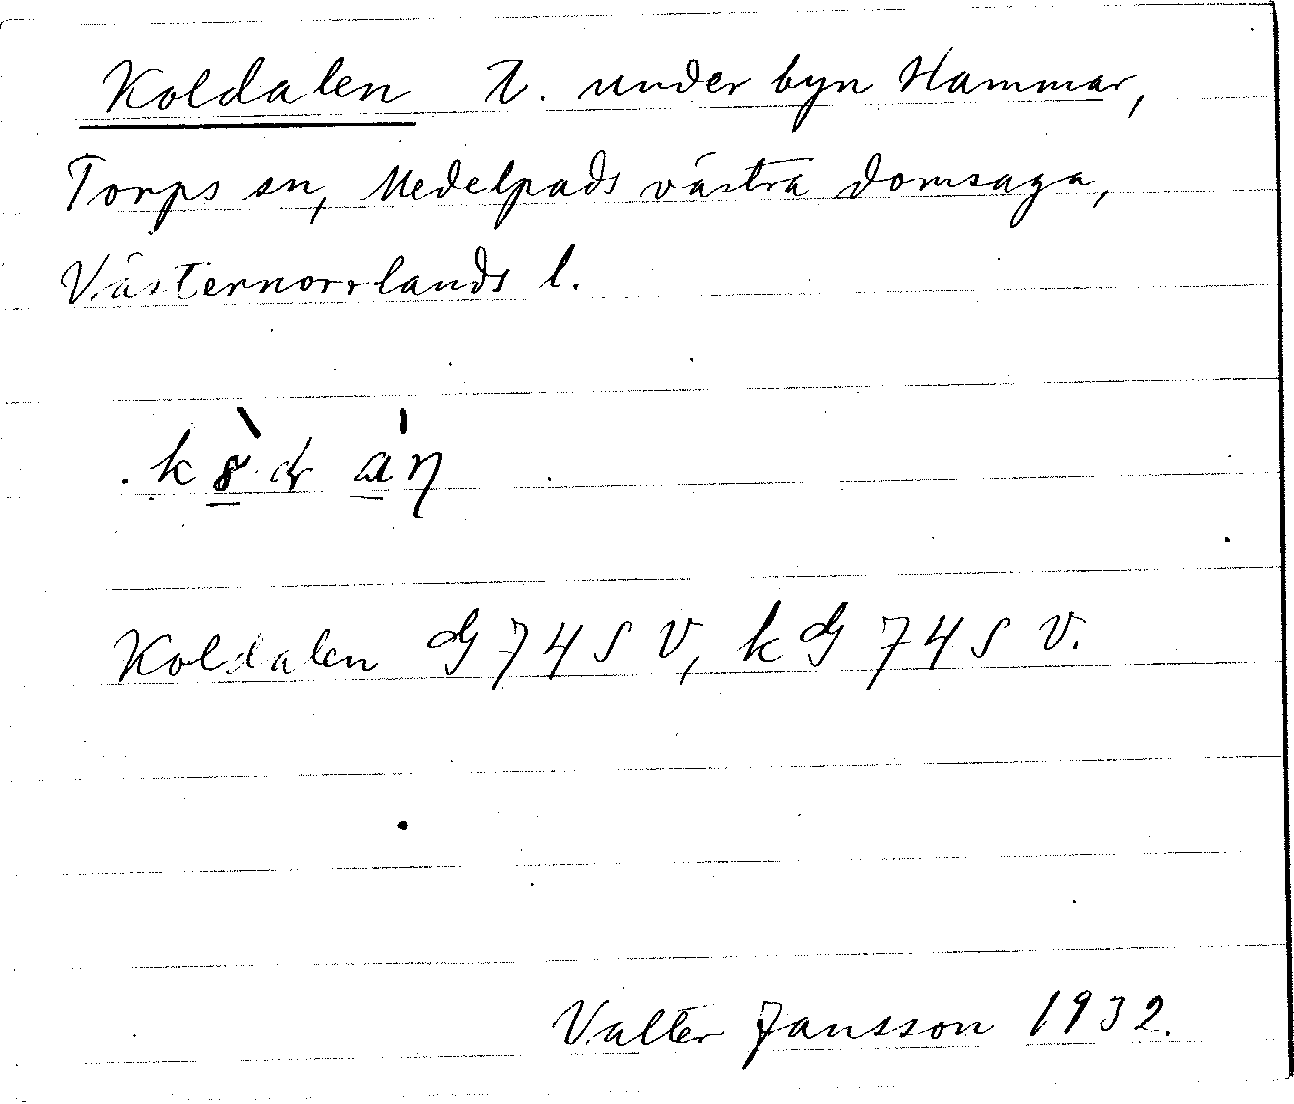 Koldalen T. under byn Hammar,
Torps sn, Medelpads västra domsaga,
Västernorrlands l.
Koldalen G 74 S V, k G 74 S V.
Valter Jansson 1932.